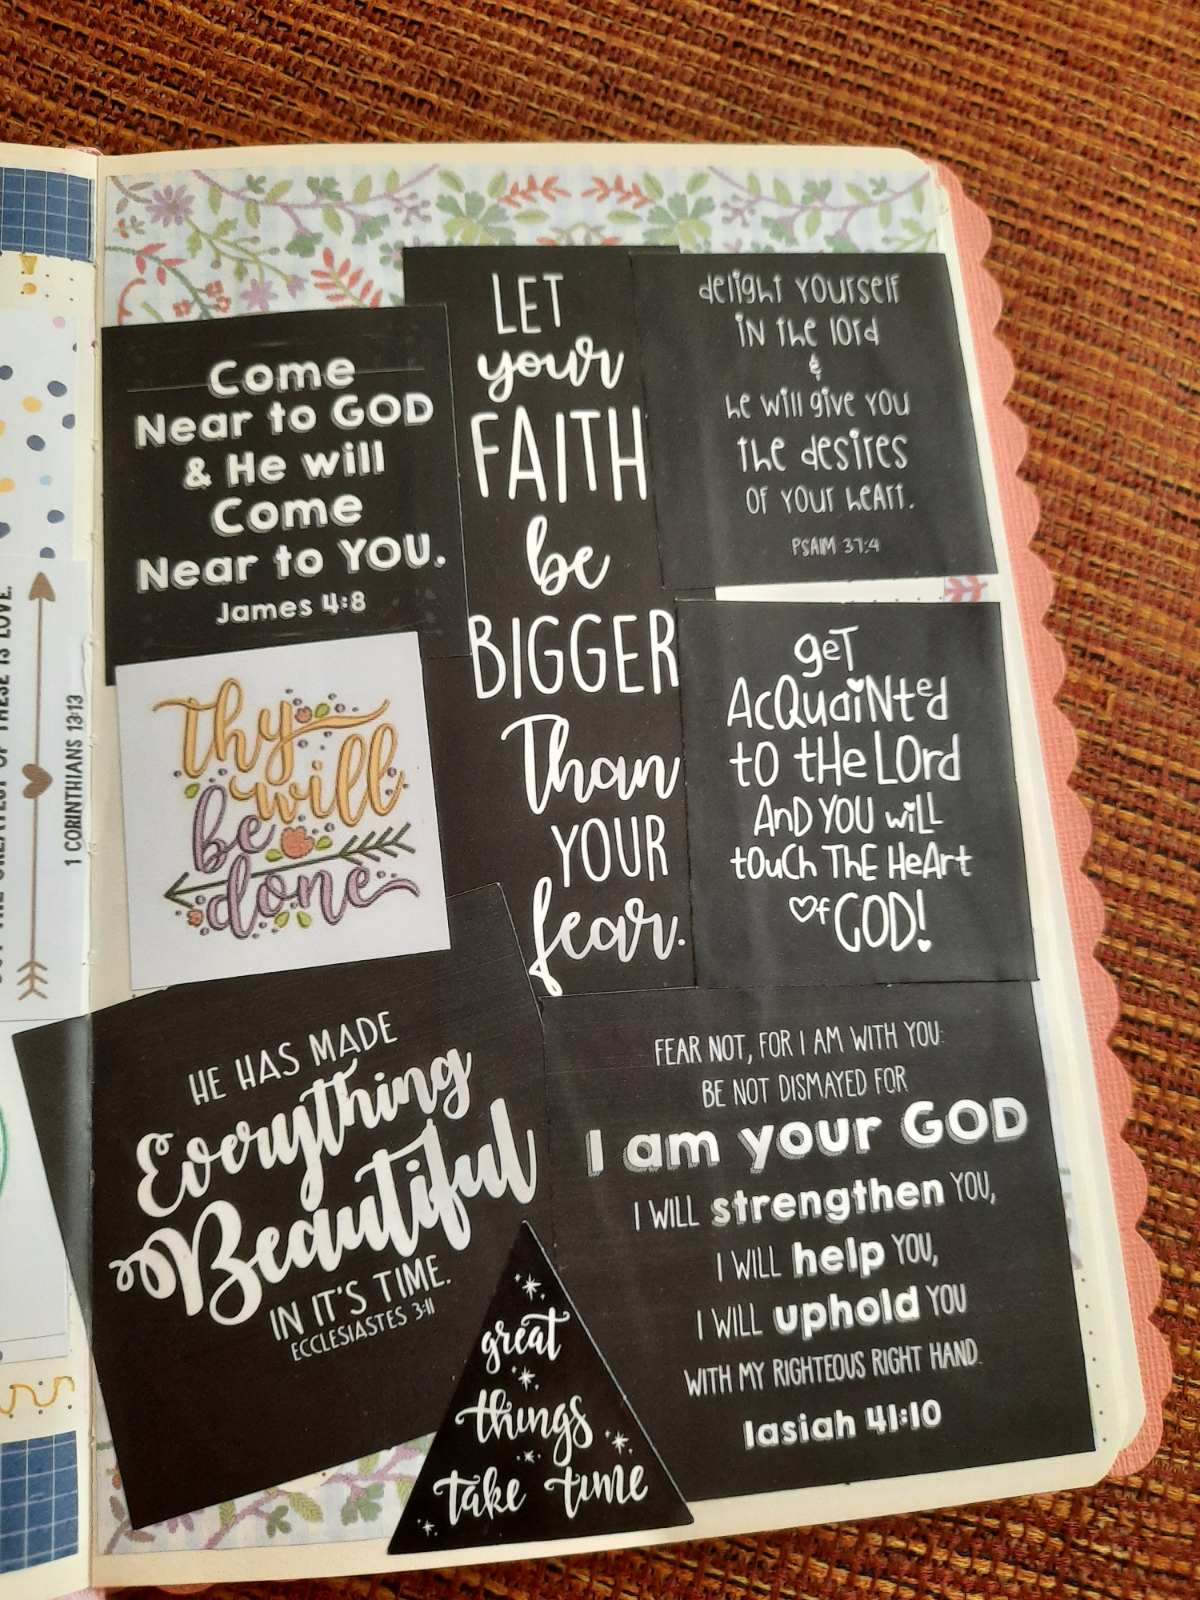 Come
Near to GOD
& He will
Come
Near to YOU.
James 4:8
LET
your
FAITH
be
BIGGER
Than
YOUR
fear.
delight yourself
in the lord
&
he will give you
the desires
of your heart.
PSAIM 37:4
thy
will
be
done
get
AcQuaiNted
to tHe LOrd
And YOU wiLL
touch ThE HeArt
of GOD!
HE HAS MADE
Everything
Beautiful
IN IT'S TIME.
ECCLESIASTES 3:11
great
things
take time
FEAR NOT, FOR I AM WITH YOU:
BE NOT DISMAYED FOR
I am your GOD
I WILL strengthen YOU,
I WILL help YOU,
I WILL uphold YOU
WITH MY RIGHTEOUS RIGHT HAND.
Iasiah 41:10
THE GREATEST OF THESE IS LOVE.
1 CORINTHIANS 13:13